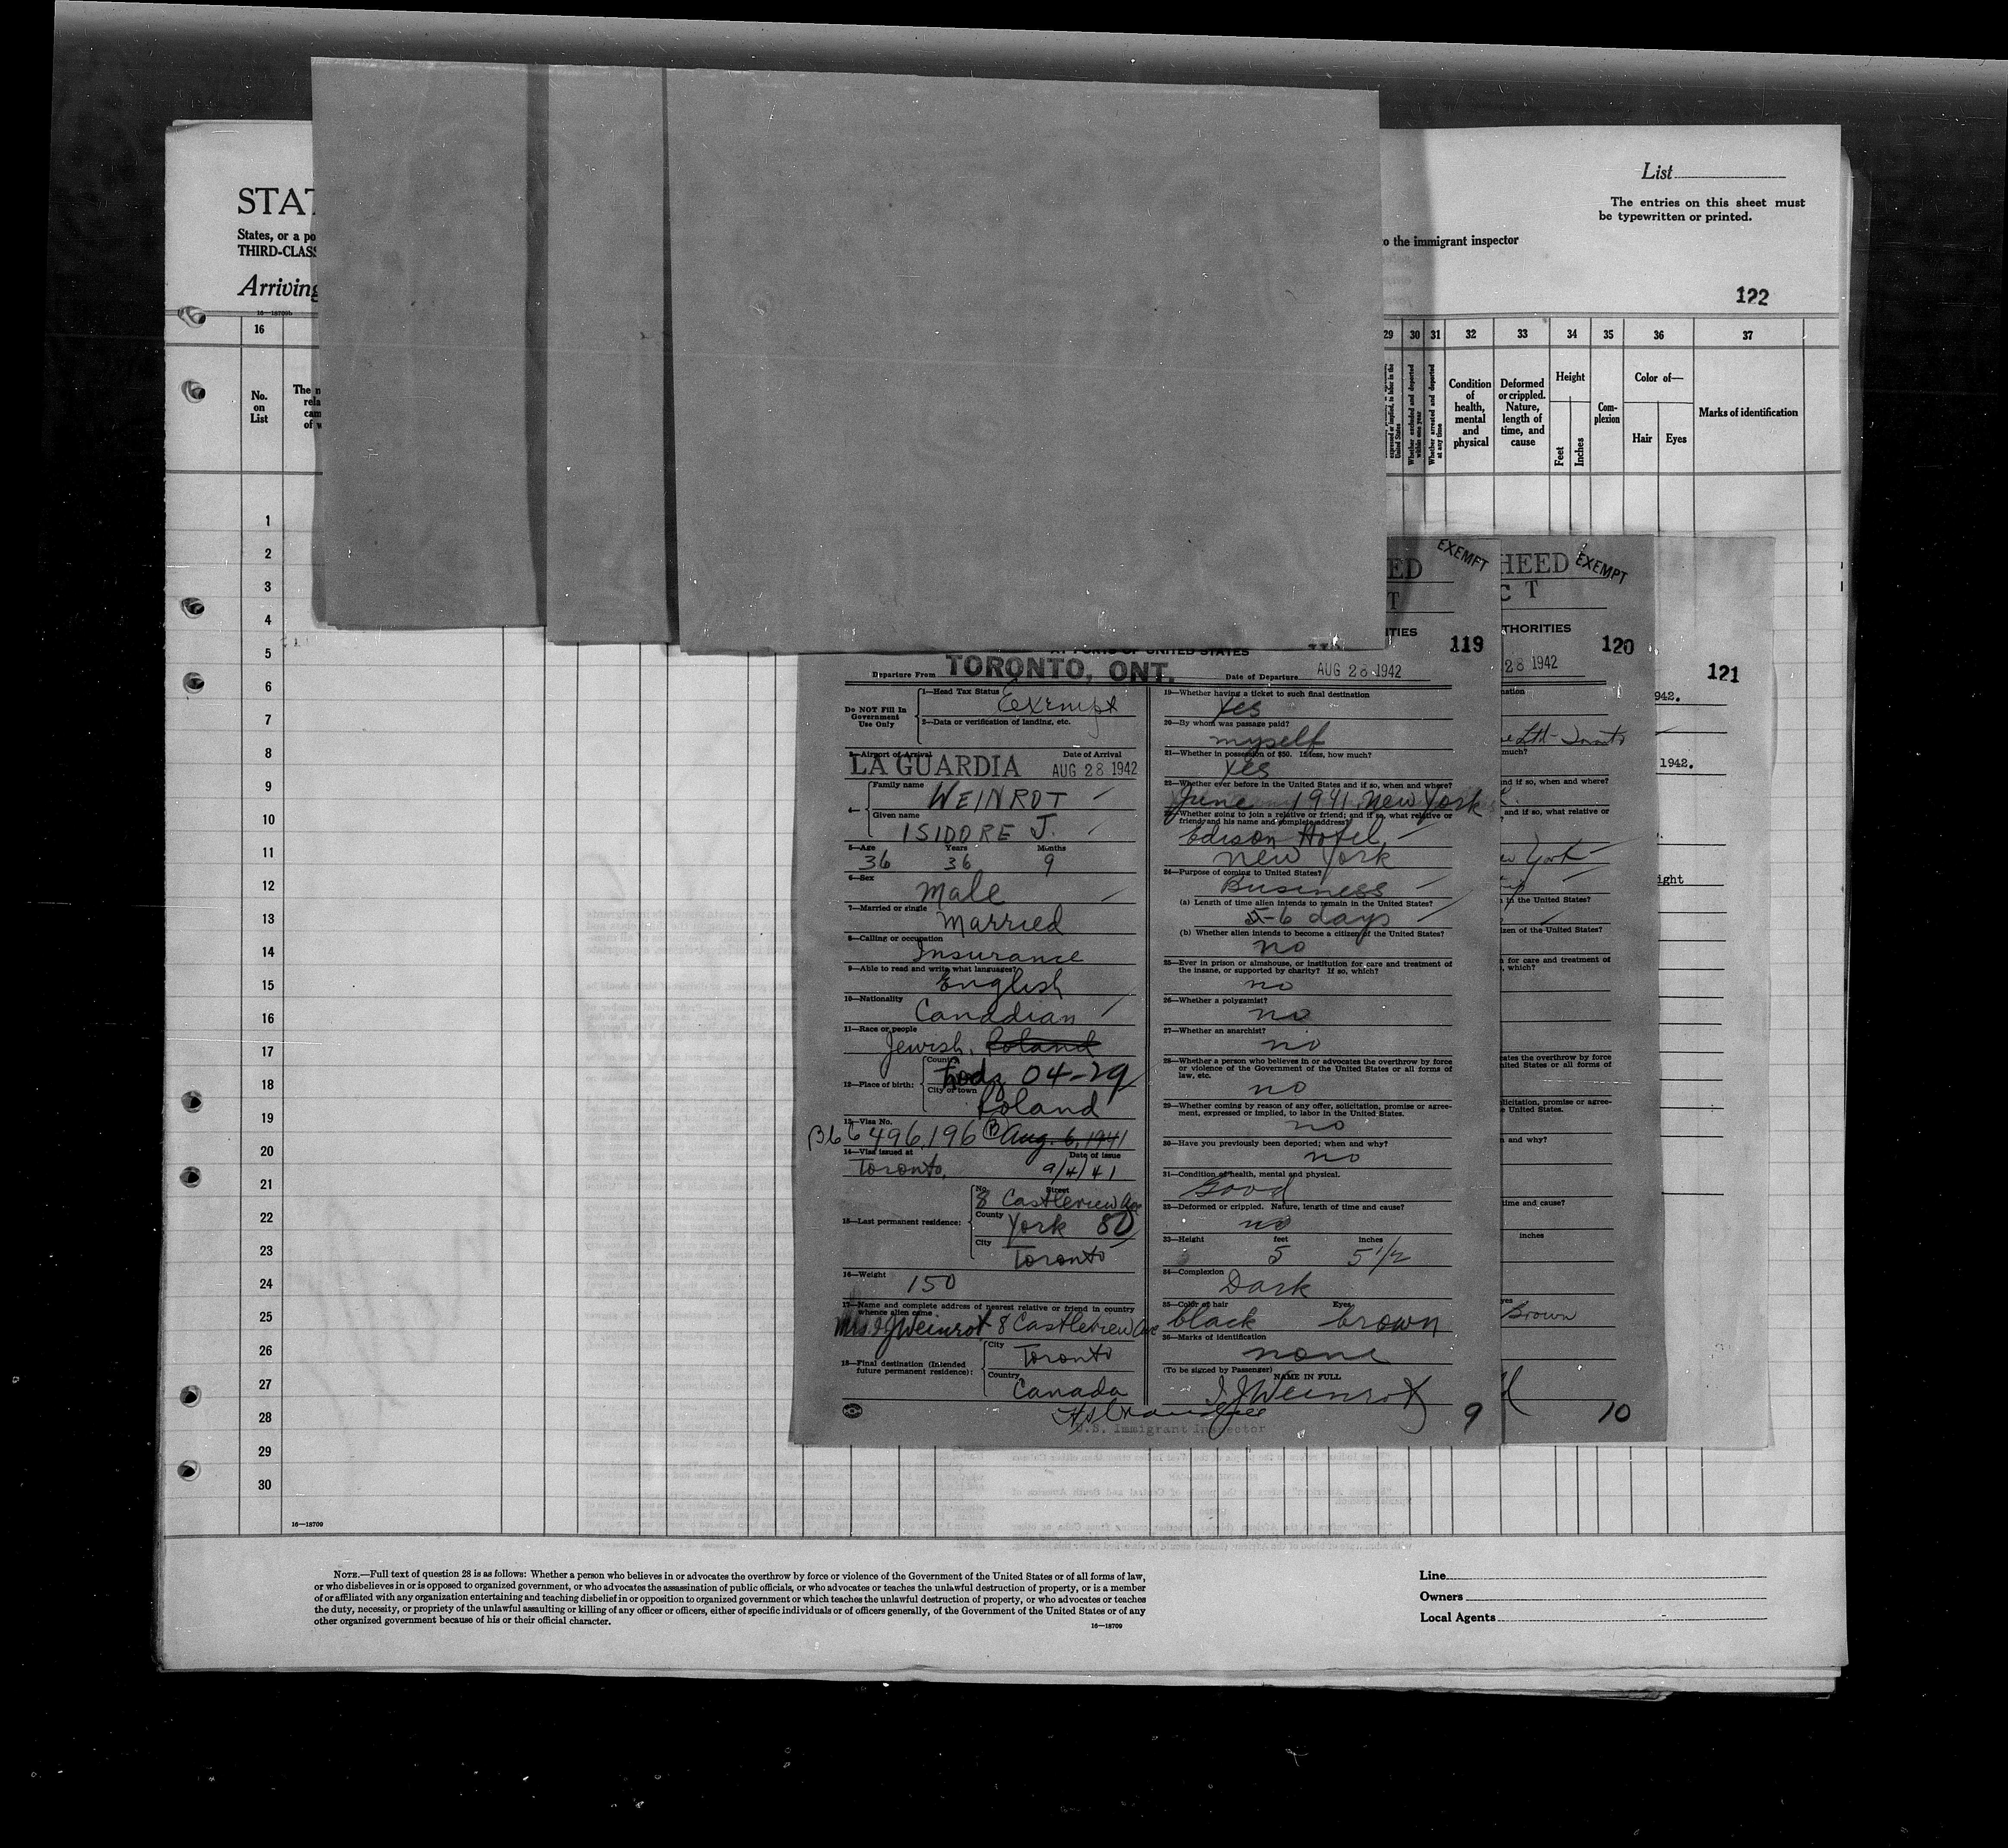 List
The entries on this sheet must
be typewritten or printed.
STAT
States, or a po
THIRD-CLASS
o the immigrant inspector
Arriving
122
16—18709b
16
29 30 31 32 33 34 35 36 37
No.
on
List
The n
rela
cam
of w
expressed or implied, to labor in the United States
Whether excluded and deported within one year
Whether arrested and deported at any time
Condition
of
health,
mental
and
physical
Deformed
or crippled.
Nature,
length of
time, and
cause
Height
Feet
Inches
Com-
plexion
Color of—
Hair
Eyes
Marks of identification
1
2
3
4
5
6
7
8
9
10
11
12
13
14
15
16
17
18
19
20
21
22
23
24
25
26
27
28
29
30
16—18709
AT PORTS OF UNITED STATES
Departure From TORONTO, ONT.
Date of Departure AUG 28 1942
Do NOT Fill In
Government
Use Only
1—Head Tax Status
Exempt
2—Data or verification of landing, etc.
3—Airport of Arrival
Date of Arrival
LA GUARDIA AUG 28 1942
4—
Family name
WEINROT
Given name
ISIDORE J.
5—Age Years Months
36 36 9
6—Sex
Male
7—Married or single
Married
8—Calling or occupation
Insurance
9—Able to read and write what languages?
English
10—Nationality
Canadian
11—Race or people
Jewish. Poland
12—Place of birth:
Country
04-29
City or town
Poland
13—Visa No.
496196 Aug. 6, 1941
14—Visa issued at
Date of issue
Toronto, 9/4/41
15—Last permanent residence:
No. Street
8 Castleview Ave
County
York 80
City
Toronto
16—Weight
150
17—Name and complete address of nearest relative or friend in country
whence alien came
Mrs I J Weinrot 8 Castleview Ave
18—Final destination (Intended
future permanent residence):
City
Toronto
Country
Canada
U.S. Immigrant Inspector
19—Whether having a ticket to such final destination
Yes
20—By whom was passage paid?
myself
21—Whether in possession of $50. If less, how much?
Yes
22—Whether ever before in the United States and if so, when and where?
June 1941 New York
23—Whether going to join a relative or friend; and if so, what relative or
friend and his name and complete address?
Edison Hotel,
New York
24—Purpose of coming to United States?
Business
(a) Length of time alien intends to remain in the United States?
5-6 days
(b) Whether alien intends to become a citizen of the United States?
no
25—Ever in prison or almshouse, or institution for care and treatment of
the insane, or supported by charity? If so, which?
no
26—Whether a polygamist?
no
27—Whether an anarchist?
no
28—Whether a person who believes in or advocates the overthrow by force
or violence of the Government of the United States or all forms of
law, etc.
no
29—Whether coming by reason of any offer, solicitation, promise or agree-
ment, expressed or implied, to labor in the United States.
no
30—Have you previously been deported; when and why?
no
31—Condition of health, mental and physical.
Good
32—Deformed or crippled. Nature, length of time and cause?
no
33—Height feet inches
5 5 1/2
34—Complexion
Dark
35—Color of hair Eyes
black brown
36—Marks of identification
none
(To be signed by Passenger)
NAME IN FULL
I J Weinrot
9
ED
EXEMPT
T
ITIES
119
HEED
EXEMPT
C T
THORITIES
120
28 1942
nation
Ltd-
much?
and if so, when and where?
and if so, what relative or
New York
in the United States?
izen of the United States?
for care and treatment of
, which?
cates the overthrow by force
nited States or all forms of
licitation, promise or agree-
e United States.
and why?
time and cause?
inches
yes
Brown
10
121
942.
1942.
ight
NOTE.—Full text of question 28 is as follows: Whether a person who believes in or advocates the overthrow by force or violence of the Government of the United States or of all forms of law,
or who disbelieves in or is opposed to organized government, or who advocates the assassination of public officials, or who advocates or teaches the unlawful destruction of property, or is a member
of or affiliated with any organization entertaining and teaching disbelief in or opposition to organized government or which teaches the unlawful destruction of property, or who advocates or teaches
the duty, necessity, or propriety of the unlawful assaulting or killing of any officer or officers, either of specific individuals or of officers generally, of the Government of the United States or of any
other organized government because of his or their official character.
16—18709
Line
Owners
Local Agents